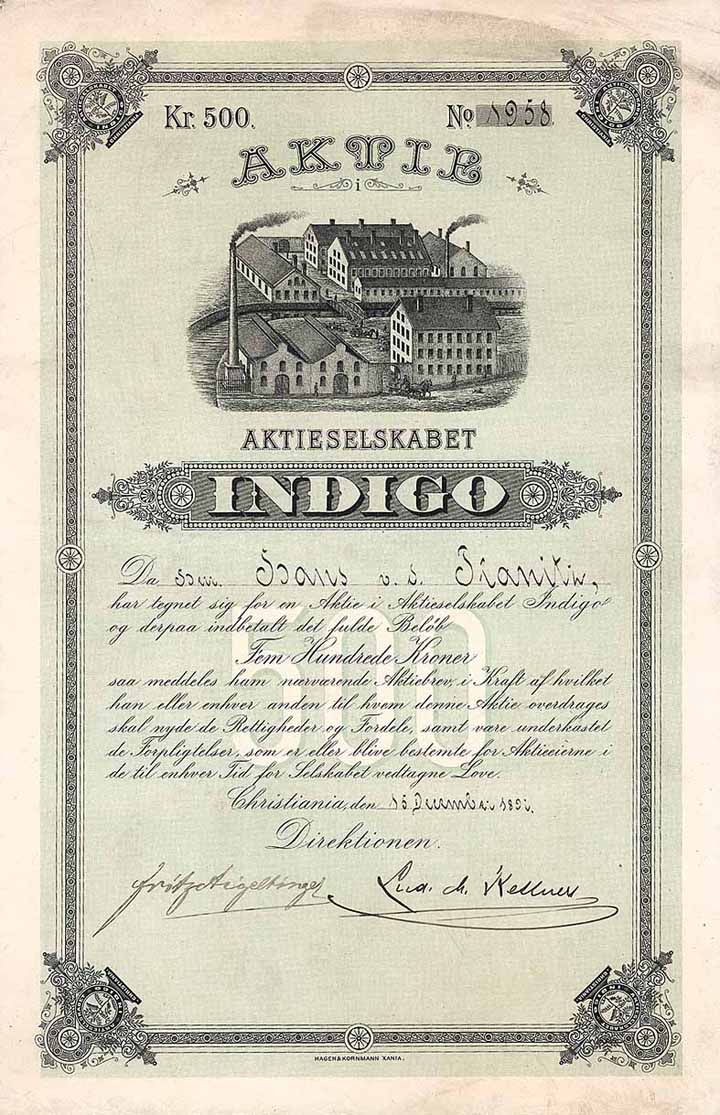 Kr. 500.
No 1958
AKTIE
i
AKTIESELSKABET
INDIGO
Da Herr Hans v. d.
har tegnet sig for en Aktie i Aktieselskabet Indigo
og derpaa indbetalt det fulde Beløb
Fem Hundrede Kroner
saa meddeles ham nærværende Aktiebrev, i Kraft af hvilket
han eller enhver anden til hvem denne Aktie overdrages
skal nyde de Rettigheder og Fordele, samt være underkastet
de Forpligtelser, som er eller blive bestemte for Aktieeierne i
de til enhver Tid for Selskabet vedtagne Love.
500
Christiania, den 15 December
Direktionen.
Lud. M. Kellner
HAGEN & KORNMANN XANIA.